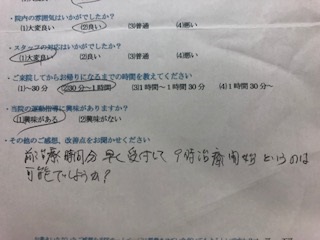 ・院内の雰囲気はいかがでしたか？
(1)大変良い (2)良い (3)普通 (4)悪い
・スタッフの対応はいかがでしたか？
(1)大変良い (2)良い (3)普通 (4)悪い
・ご来院してからお帰りになるまでの時間を教えてください
(1)～30分 (2)30分～1時間 (3)1時間～1時間30分 (4)1時間30分～
・当院の運動指導に興味がありますか？
(1)興味がある (2)興味がない
・その他のご感想、改善点をお聞かせください
治療時間分早く受付して9時治療開始というのは
可能でしょうか？